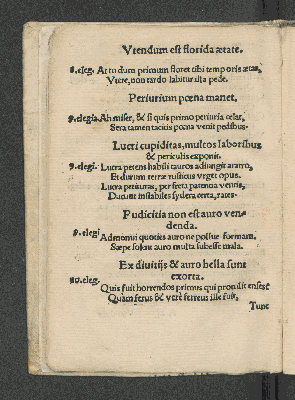 Vtendum est florida ætate.
8. eleg. At tu dum primum floret tibi temporis ætas,
Vtere, non tardo labitur illa pede.
Periurium pœna manet.
9. elegia. Ah miser, & si quis primo periuria celat,
Sera tamen tacitis pœna venit pedibus.
Lucri cupiditas, multos laboribus
& periculis exponit.
9. elegi. Lucra petens habili tauros adiungit aratro,
Et durum terræ rusticus vrget opus.
Lucra petituras, per freta parentia ventis,
Ducunt instabiles sydera certa, rates.
Pudicitia non est auro ven-
denda.
9. elegi Admonui quoties auro ne pollue formam,
Sæpe solent auro multa subesse mala.
Ex diuitijs & auro bella sunt
exorta.
10. eleg. Quis fuit horrendos primus qui protulit enses?
Quàm ferus & verè ferreus ille fuit,
Tunc